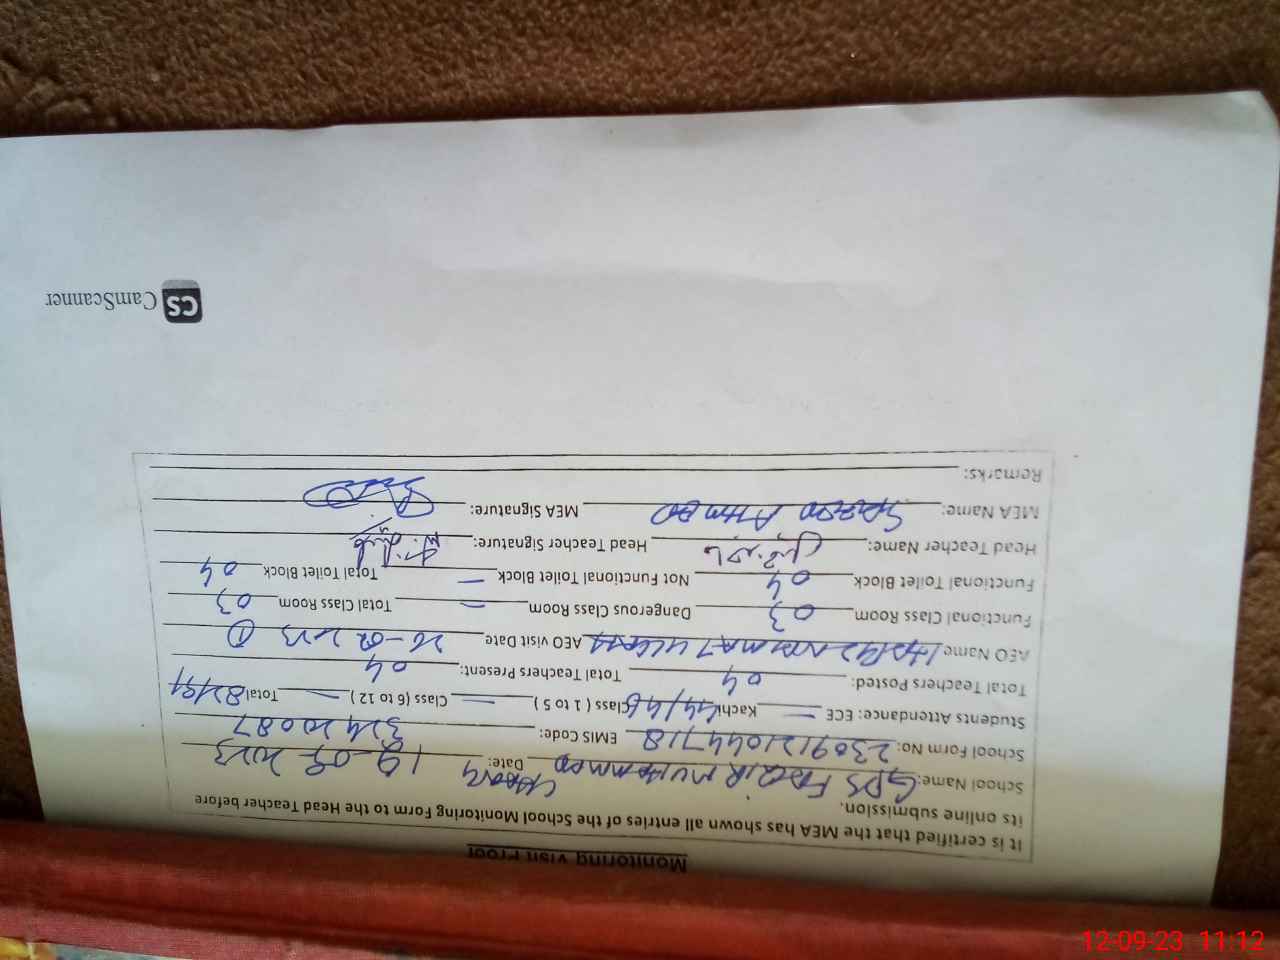 Monitoring Visit Proof
It is certified that the MEA has shown all entries of the School Monitoring Form to the Head Teacher before
its online submission.
School Name: GPS FAQIR MUHAMMAD Date: 19-09-2023
School Form No: 2309121044718 EMIS Code: 32420087
Students Attendance: ECE — Kachi 44/46 Class ( 1 to 5 ) — Class (6 to 12) — Total 82/91
Total Teachers Posted: 04 Total Teachers Present: 04
AEO Name AEO visit Date 26-08-2023 ①
Functional Class Room 03 Dangerous Class Room — Total Class Room 03
Functional Toilet Block 04 Not Functional Toilet Block — Total Toilet Block 04
Head Teacher Name: Head Teacher Signature:
MEA Name: AHMAD MEA Signature:
Remarks:
CS CamScanner
12-09-23 11:12